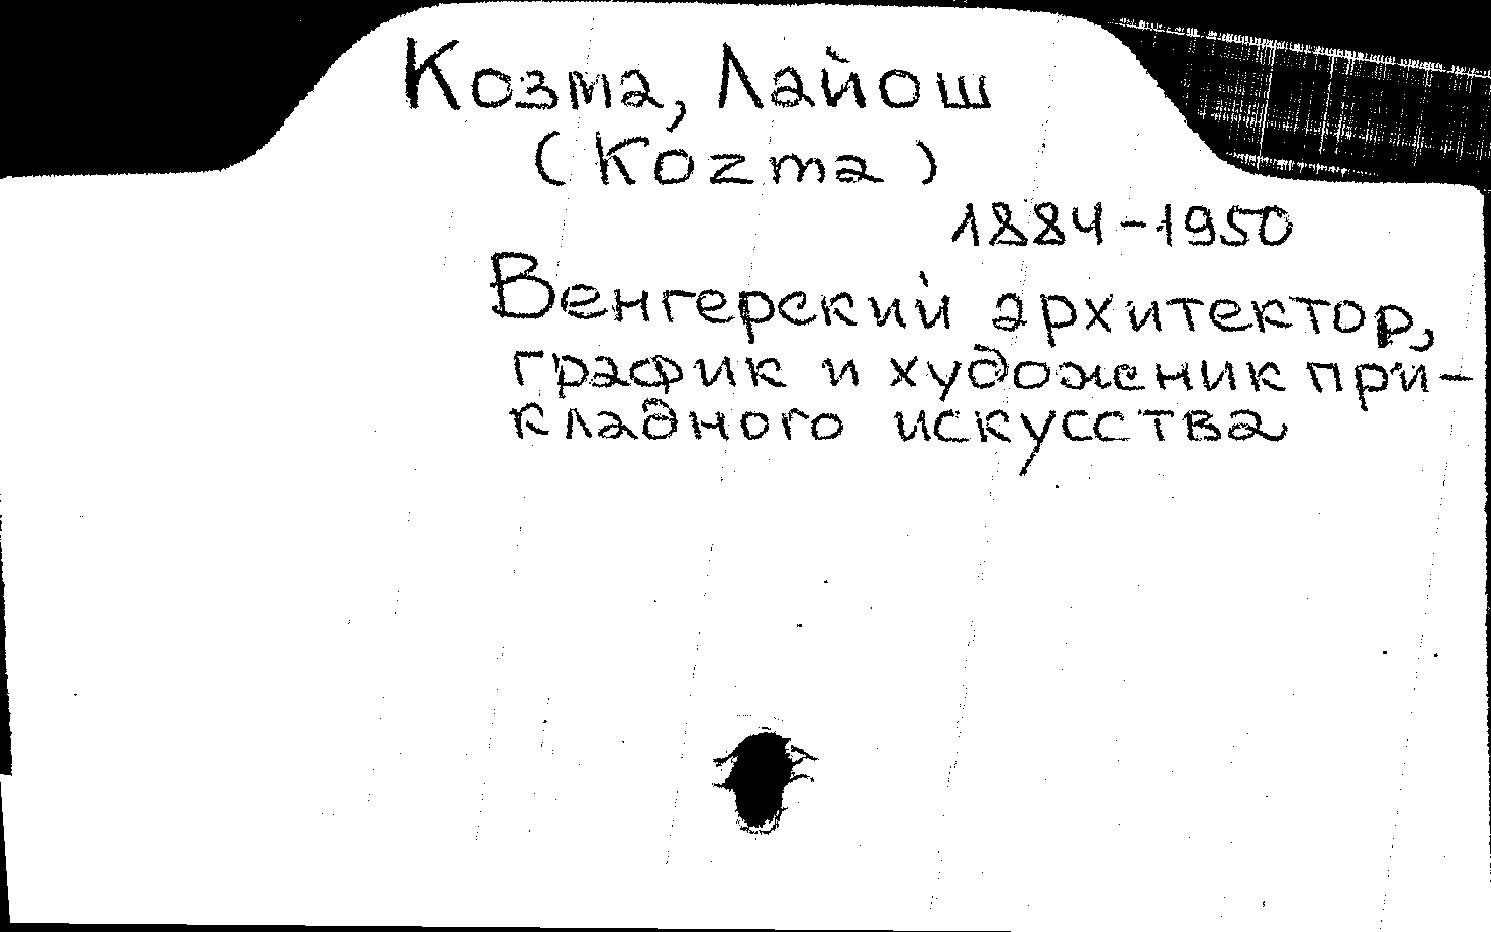 Козма, Лайош
(Kozma)
1884-1950
Венгерский архитектор,
график и художник при-
кладного искусства